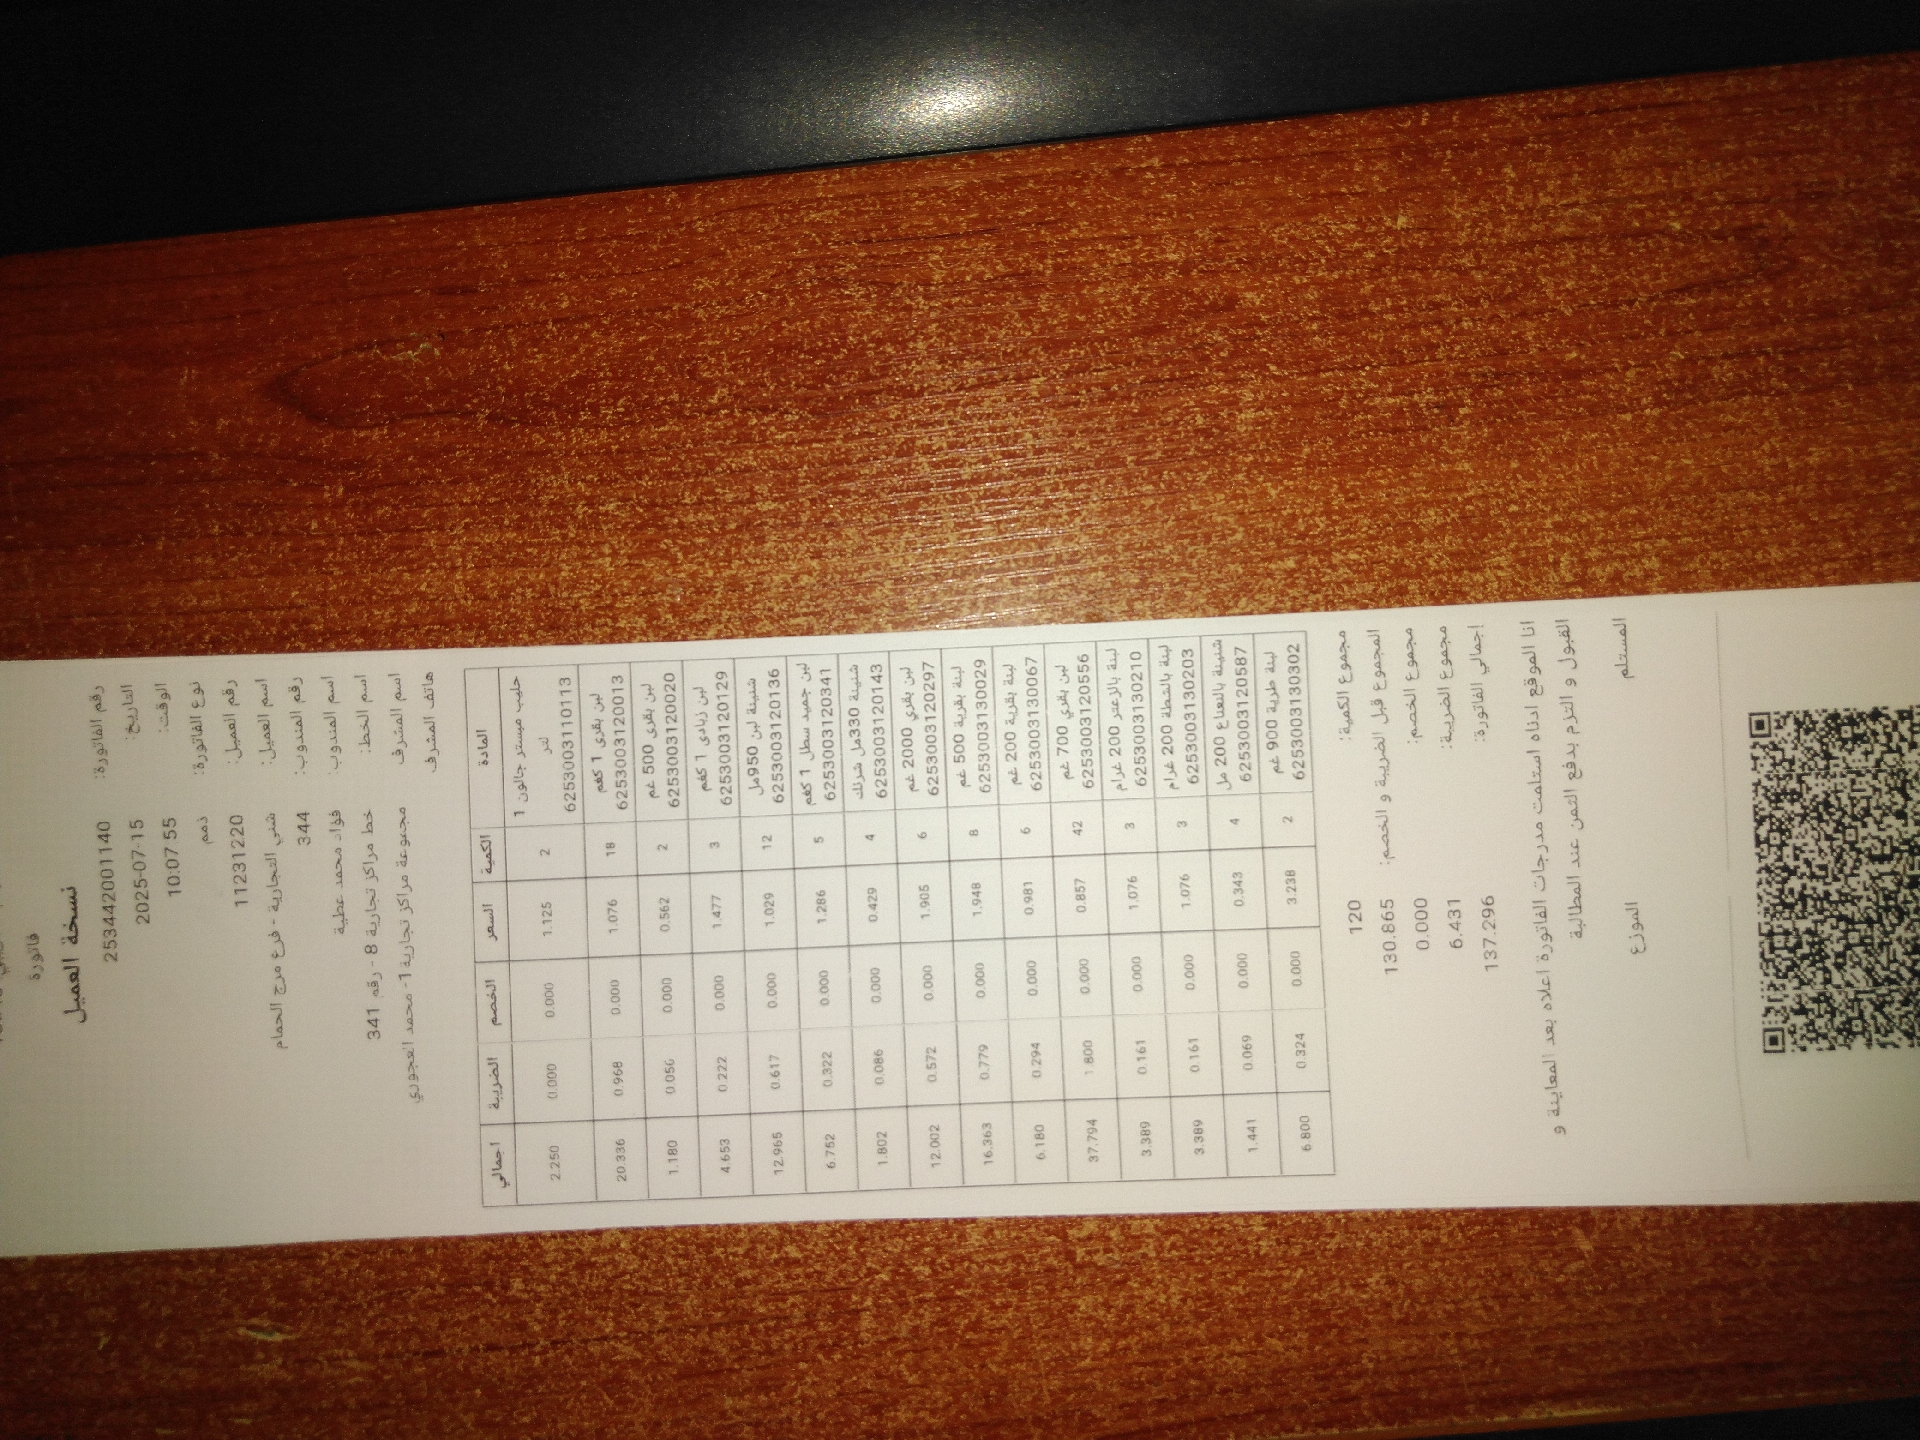 فاتورة
نسخة العميل
رقم الفاتورة: 2534420011​40
التاريخ: 2025-07-15
الوقت: 10:07:55
نوع الفاتورة: ذمم
رقم العميل: 11231220
اسم العميل: شني التجارية - فرع مرج الحمام
رقم المندوب: 344
اسم المندوب: فؤاد محمد عطية
اسم الخط: خط مراكز تجارية 8 - رقم 341
اسم المشرف مجموعة مراكز تجارية 1- محمد العجوري
هاتف المشرف
المادة الكمية السعر الخصم الضريبة اجمالي
حليب مبستر جالون 1 لتر 6253003110113 2 1.125 0.000 0.000 2.250
لبن بقري 1 كغم 6253003120013 18 1.076 0.000 0.968 20.336
لبن بقري 500 غم 6253003120020 2 0.562 0.000 0.056 1.180
لبن زبادي 1 كغم 6253003120129 3 1.477 0.000 0.222 4.653
شنينة لبن 950مل 6253003120136 12 1.029 0.000 0.617 12.965
لبن جميد سطل 1 كغم 6253003120341 5 1.286 0.000 0.322 6.752
شنينة 330مل شرنك 6253003120143 4 0.429 0.000 0.086 1.802
لبن بقري 2000 غم 6253003120297 6 1.905 0.000 0.572 12.002
لبنة بقرية 500 غم 6253003130029 8 1.948 0.000 0.779 16.363
لبنة بقرية 200 غم 6253003130067 6 0.981 0.000 0.294 6.180
لبن بقري 700 غم 6253003120556 42 0.857 0.000 1.800 37.794
لبنة بالزعتر 200 غرام 6253003130210 3 1.076 0.000 0.161 3.389
لبنة بالشطة 200 غرام 6253003130203 3 1.076 0.000 0.161 3.389
شنينة بالنعناع 200 مل 6253003120587 4 0.343 0.000 0.069 1.441
لبنة طرية 900 غم 6253003130302 2 3.238 0.000 0.324 6.800
مجموع الكمية: 120
المجموع قبل الضريبة و الخصم: 130.865
مجموع الخصم: 0.000
مجموع الضريبة: 6.431
اجمالي الفاتورة: 137.296
انا الموقع ادناه استلمت مدرجات الفاتورة اعلاه بعد المعاينة و
القبول و التزم بدفع الثمن عند المطالبة
المستلم الموزع